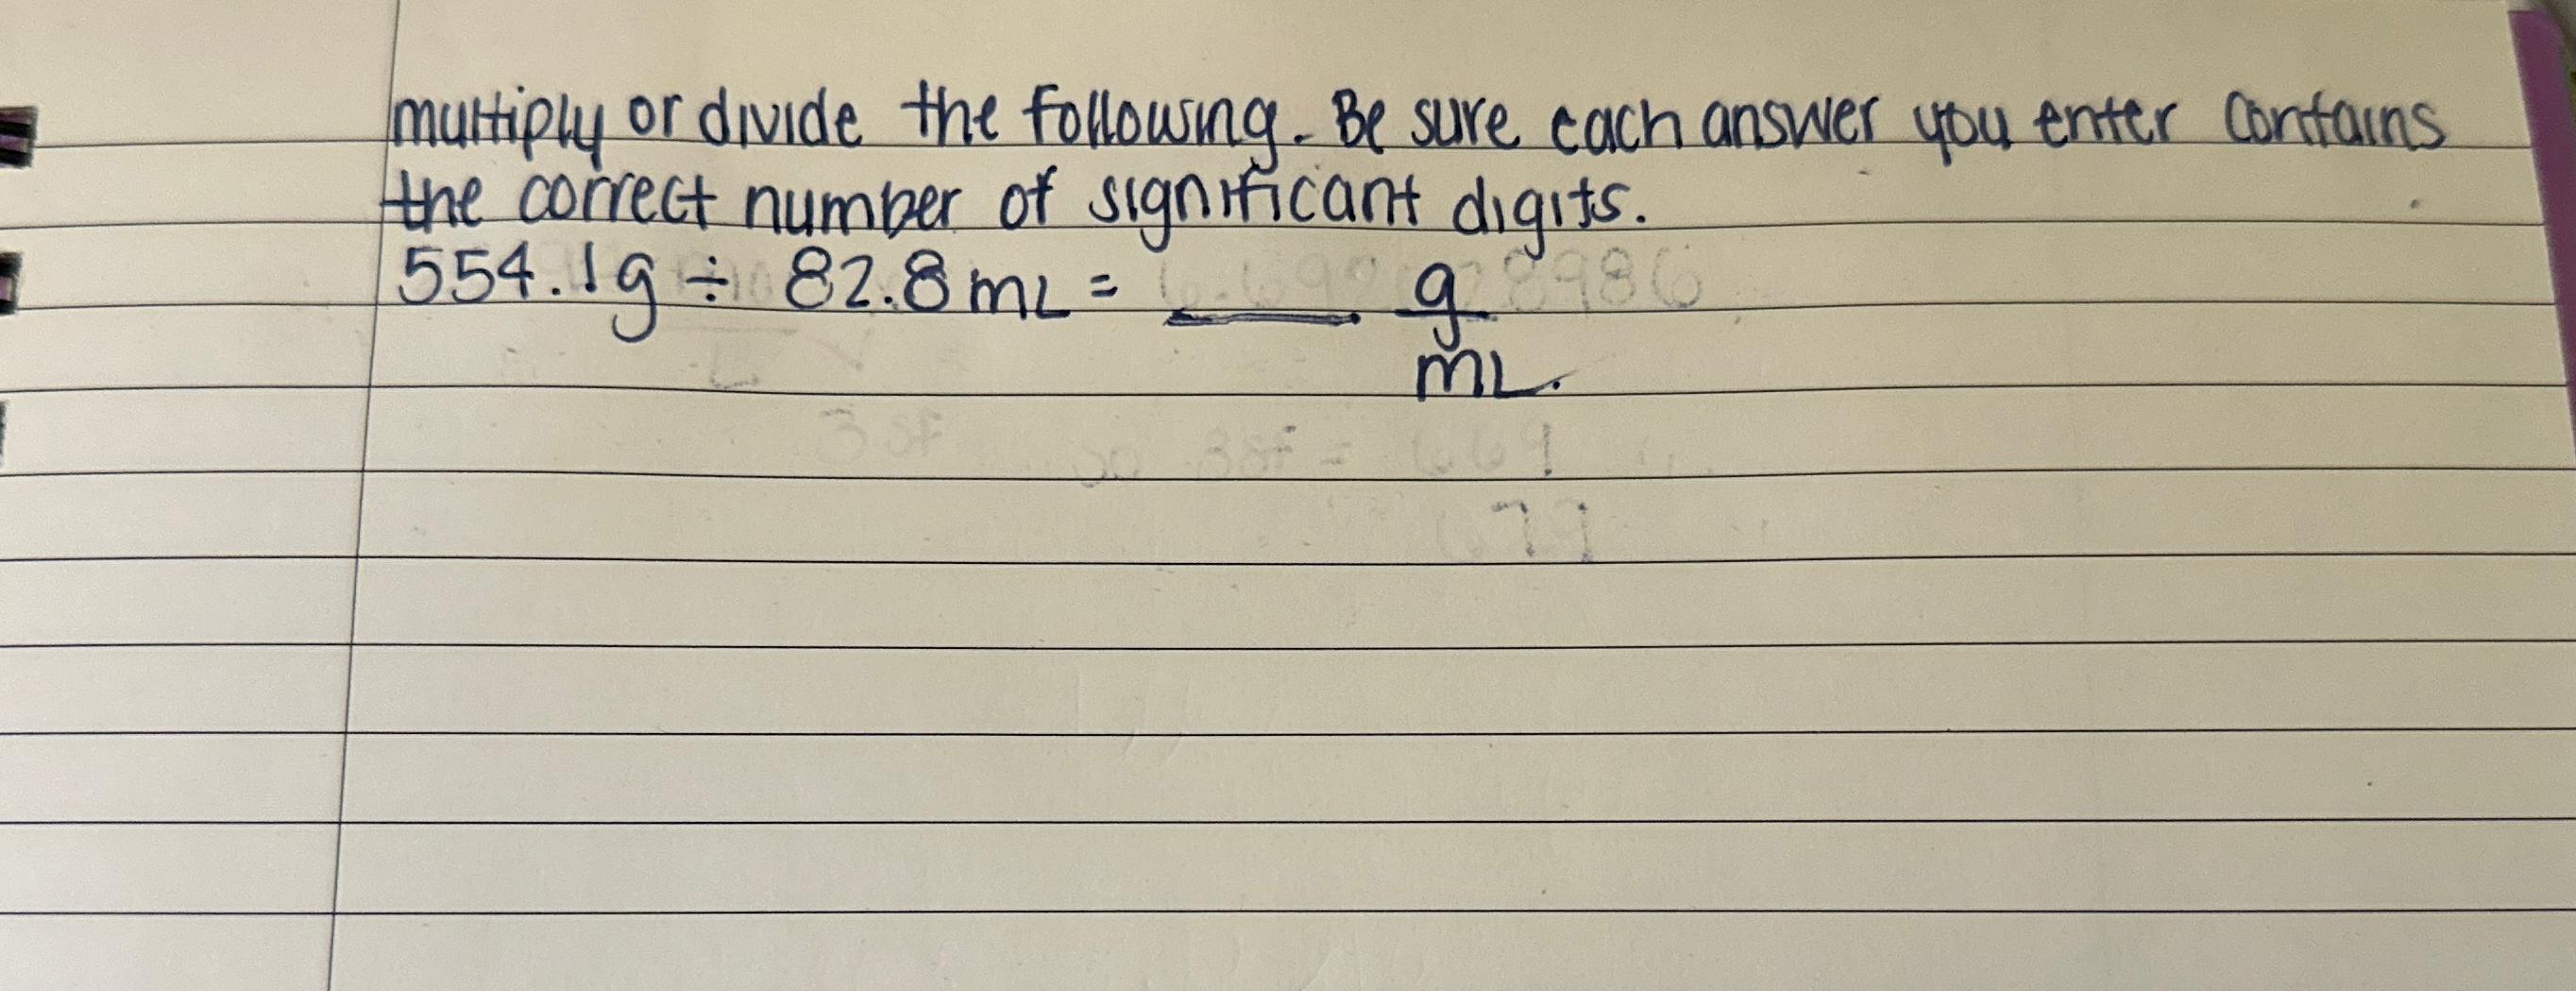 multiply or divide the following. Be sure each answer you enter contains
the correct number of significant digits.
554.1g ÷ 82.8mL = ____ g
mL.